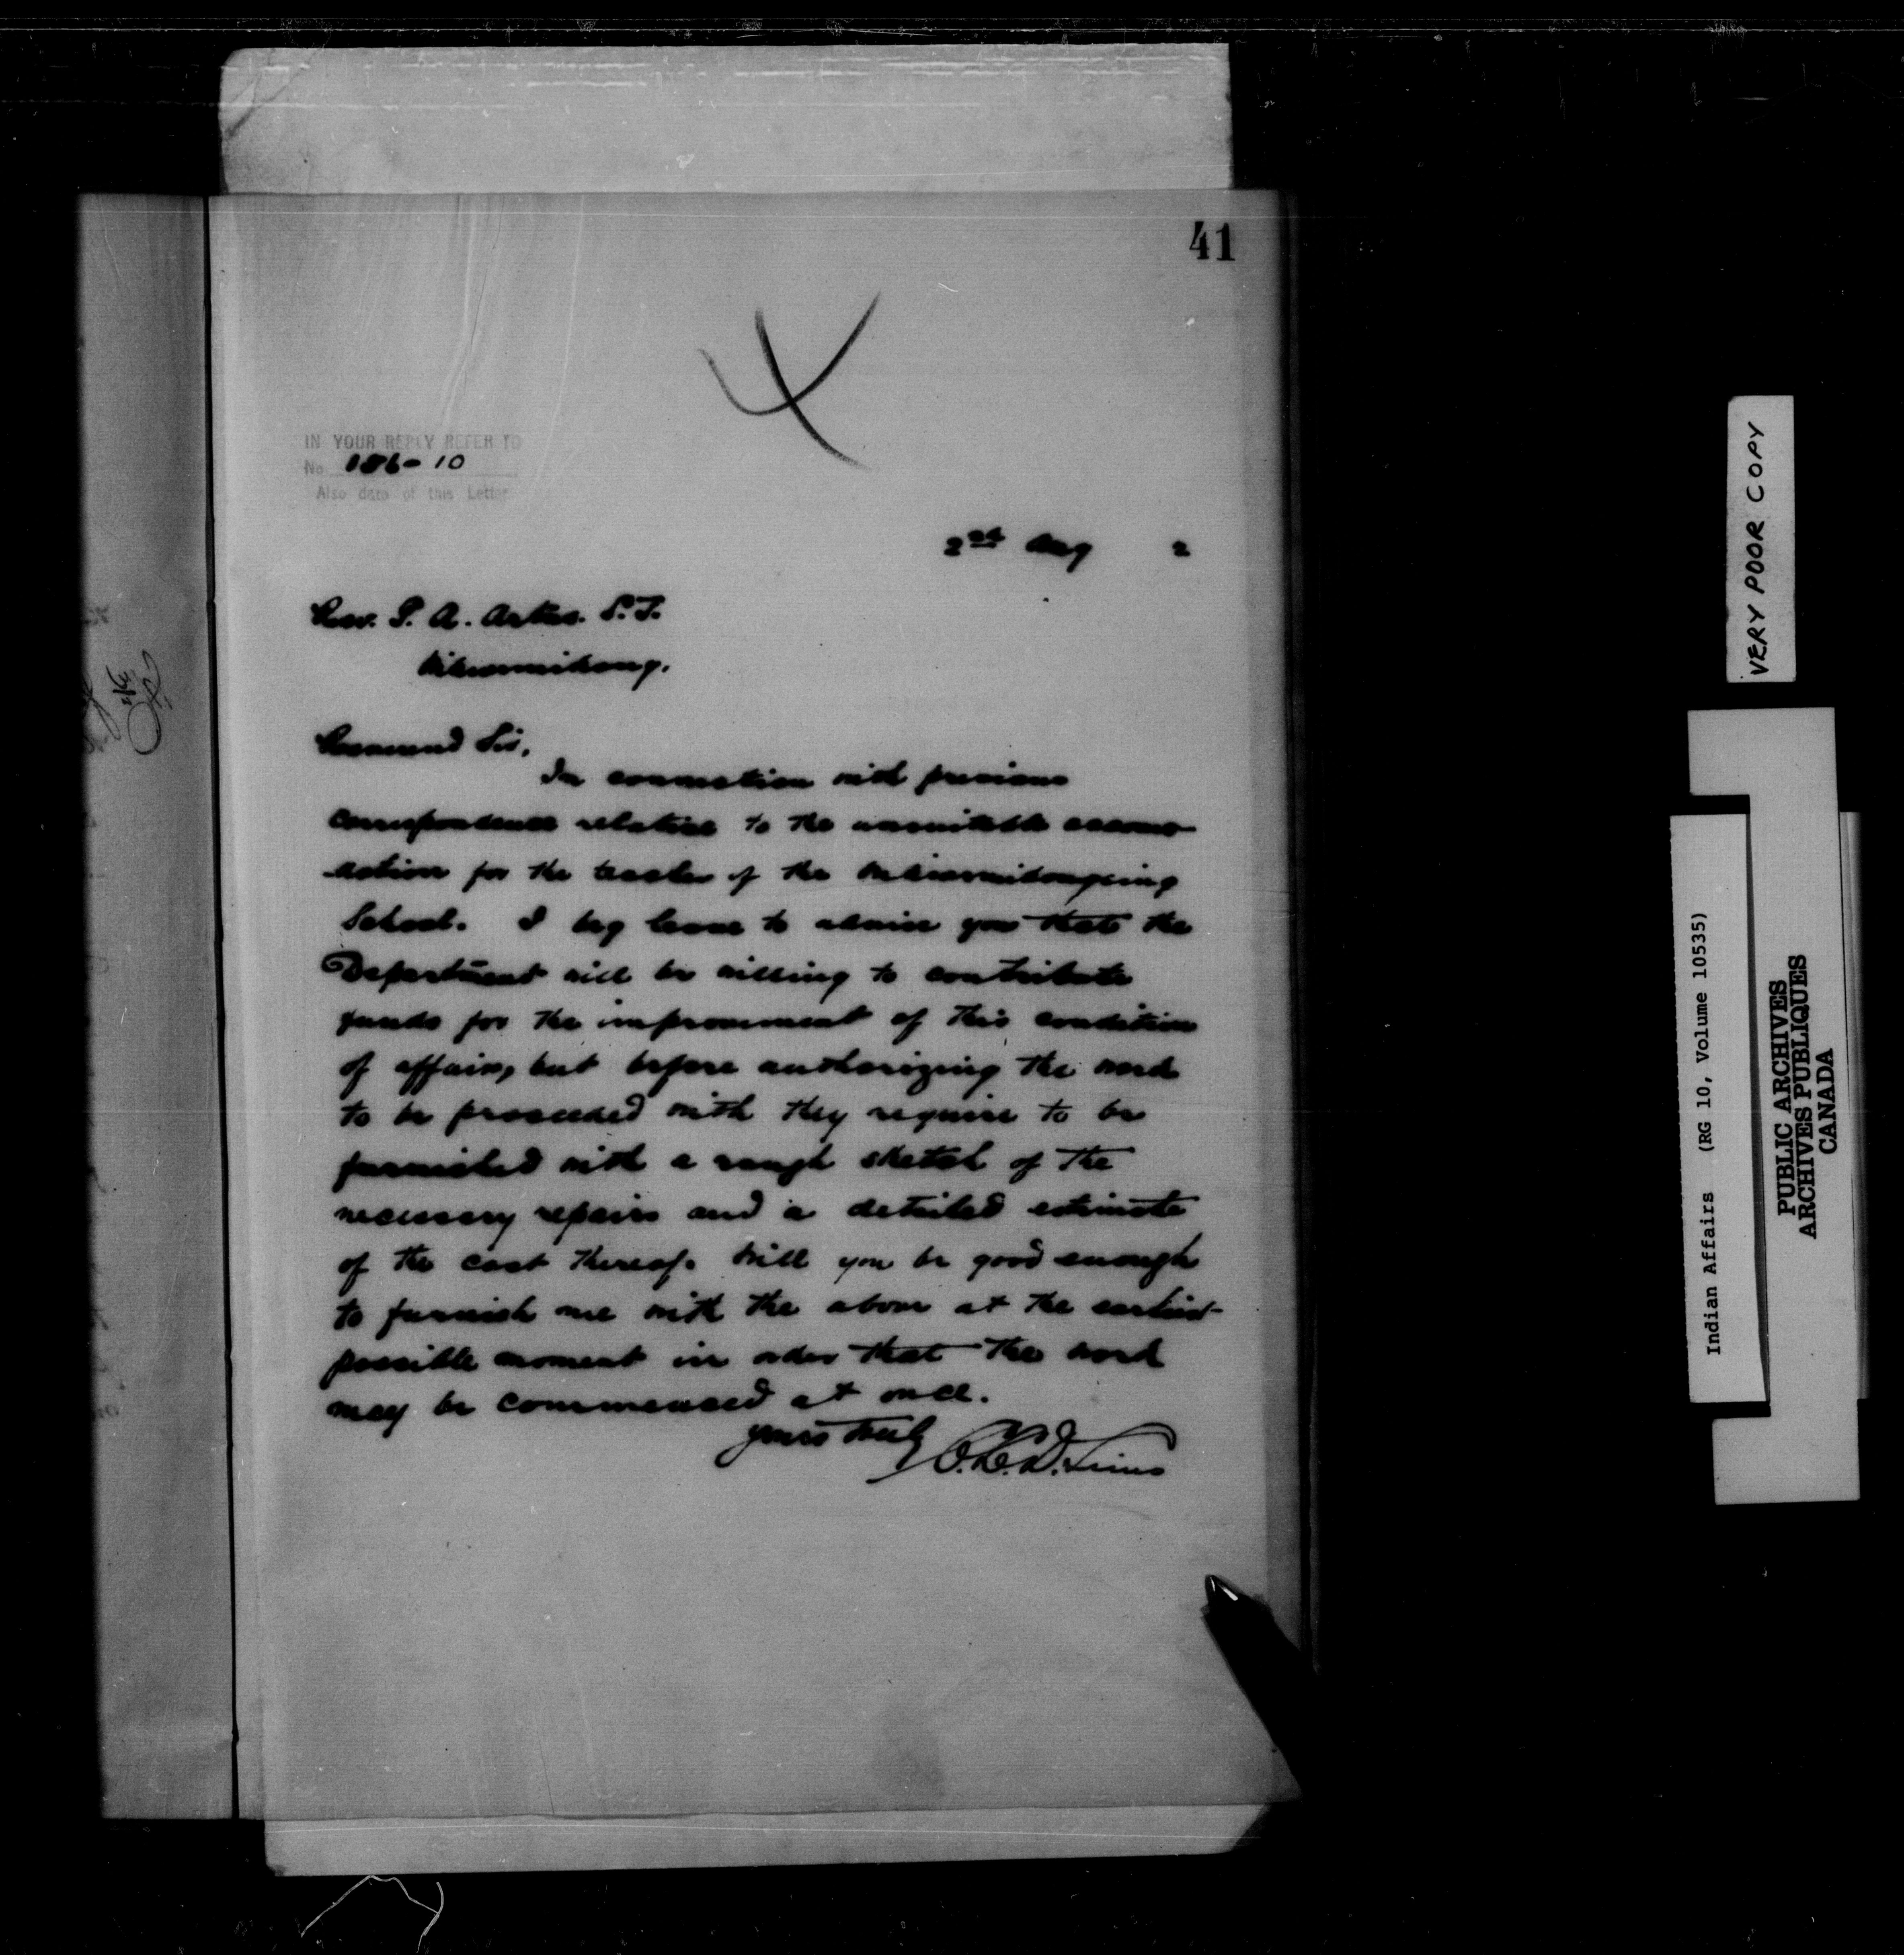 41
IN YOUR REPLY REFER TO
No 186-10
Also date of this Letter
2nd Aug 2
Rev. P. A. Artus. S.J.
Reverend Sir,
In connection with previous
correspondence relative to the unsuitable accomo-
-dation for the teacher of the
School. I beg leave to advise you that the
Department will be willing to contribute
funds for the improvement of this condition
of affairs, but before authorizing the work
to be proceeded with they require to be
furnished with a rough sketch of the
necessary repairs and a detailed estimate
of the cost thereof. Will you be good enough
to furnish me with the above at the earliest
possible moment in order that the work
may be commenced at once.
Yours truly
VERY POOR COPY
Indian Affairs (RG 10, Volume 10535)
PUBLIC ARCHIVES
ARCHIVES PUBLIQUES
CANADA